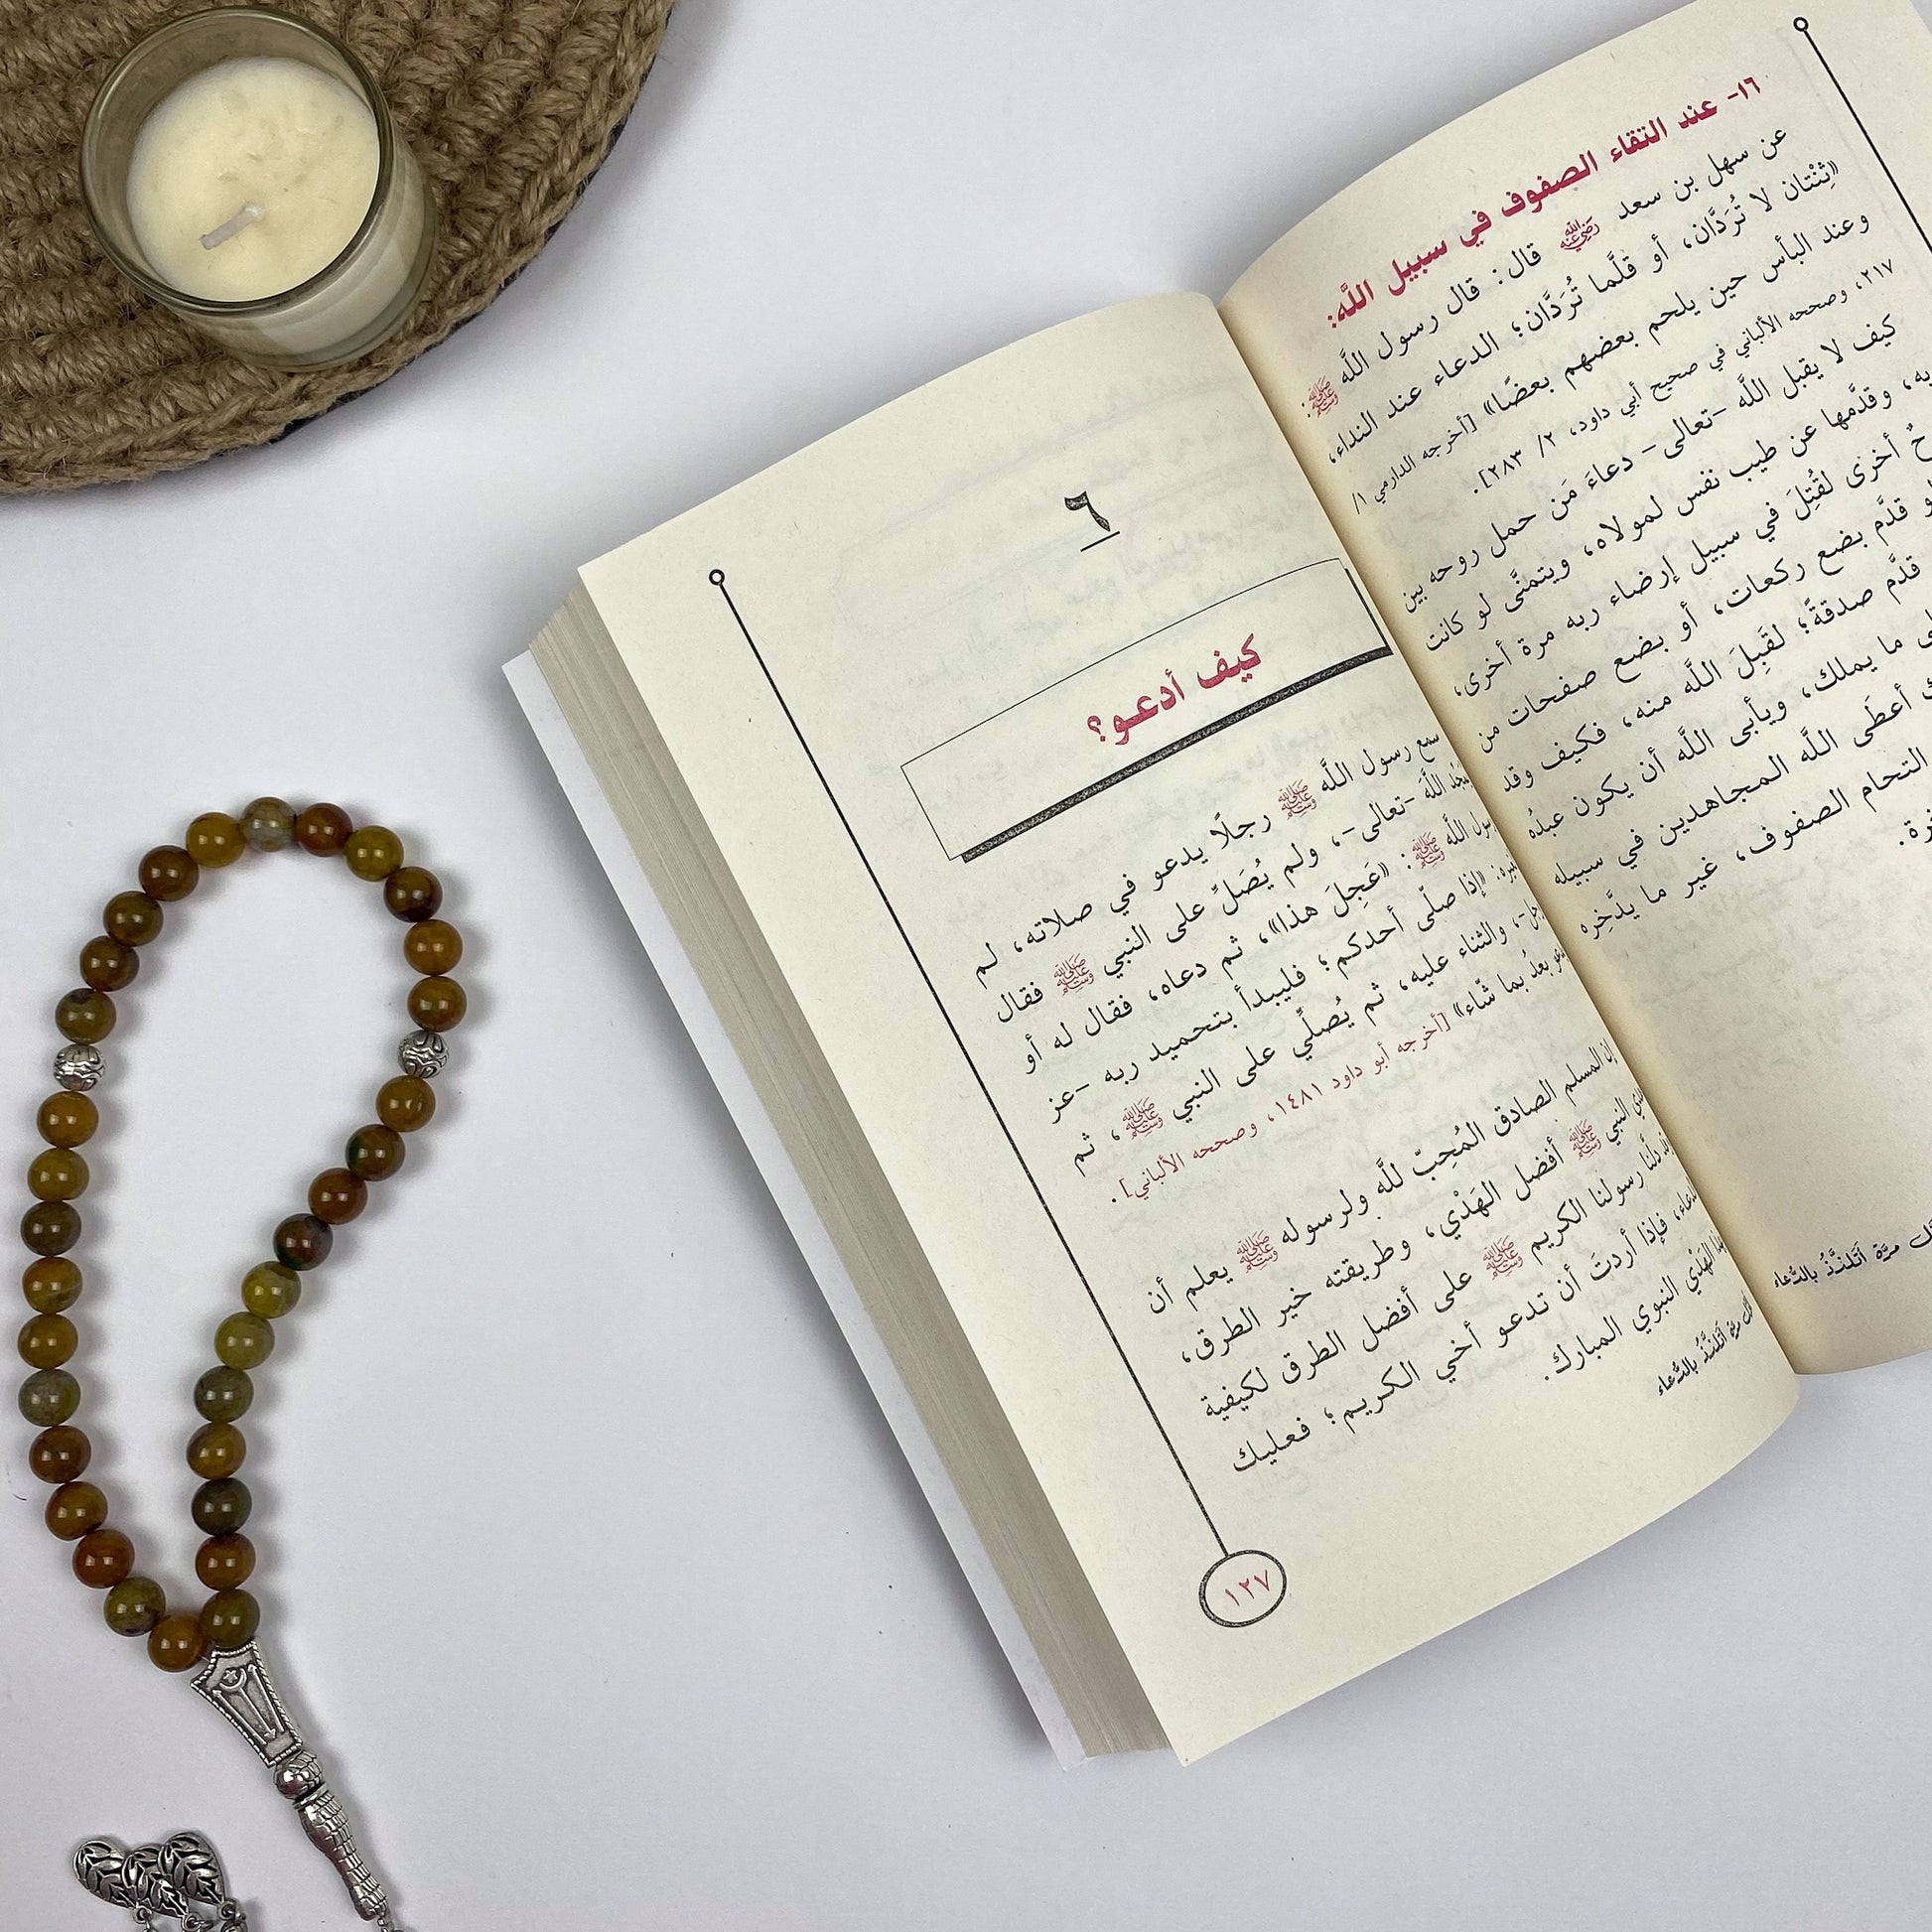 ١٦- عند التقاء الصفوف في سبيل اللَّه:
عن سهل بن سعد رضي الله عنه قال: قال رسول اللَّه ﷺ:
«ثِنْتان لا تُرَدَّان، أو قلَّما تُرَدَّان؛ الدعاء عند النداء،
وعند البأس حين يلحم بعضهم بعضًا» [أخرجه الدارمي ١/
٢١٧، وصححه الألباني في صحيح أبي داود، ٢/ ٢٨٣].
كيف لا يقبل اللَّه -تعالى- دعاءَ مَن حمل روحه بين
وقدَّمها عن طيب نفس لمولاه، ويتمنَّى لو كانت
أخرى لقُتِلَ في سبيل إرضاء ربه مرة أخرى،
قدَّم بضع ركعات، أو بضع صفحات من
قدَّم صدقةً؛ لقَبِلَ اللَّه منه، فكيف وقد
ما يملك، ويأبى اللَّه أن يكون عبدُه
أعطَى اللَّه المجاهدين في سبيله
التحام الصفوف، غير ما يدَّخِره
مرَّة أتلذَّذُ بالدُّعاء
٦
كيف أدعو؟
سمع رسول اللَّه ﷺ رجلًا يدعو في صلاته، لم
يمجِّد اللَّه -تعالى-، ولم يُصَلِّ على النبي ﷺ فقال
رسول اللَّه ﷺ: «عَجِلَ هذا»، ثم دعاه، فقال له أو
لغيره: «إذا صلّى أحدكم؛ فليبدأ بتحميد ربه -عز
وجل-، والثناء عليه، ثم يُصلِّي على النبي ﷺ، ثم
يدعو بعدُ بما شاء» [أخرجه أبو داود ١٤٨١، وصححه الألباني].
إن المسلم الصادق المُحِبّ للَّه ولرسوله ﷺ يعلم أن
هدي النبي ﷺ أفضل الهَدْي، وطريقته خير الطرق،
دلَّنا رسولنا الكريم ﷺ على أفضل الطرق لكيفية
الدعاء، فإذا أردتَ أن تدعو أخي الكريم؛ فعليك
بهذا الهَدْي النبوي المبارك.
مرَّة أتلذَّذُ بالدُّعاء
١٢٧